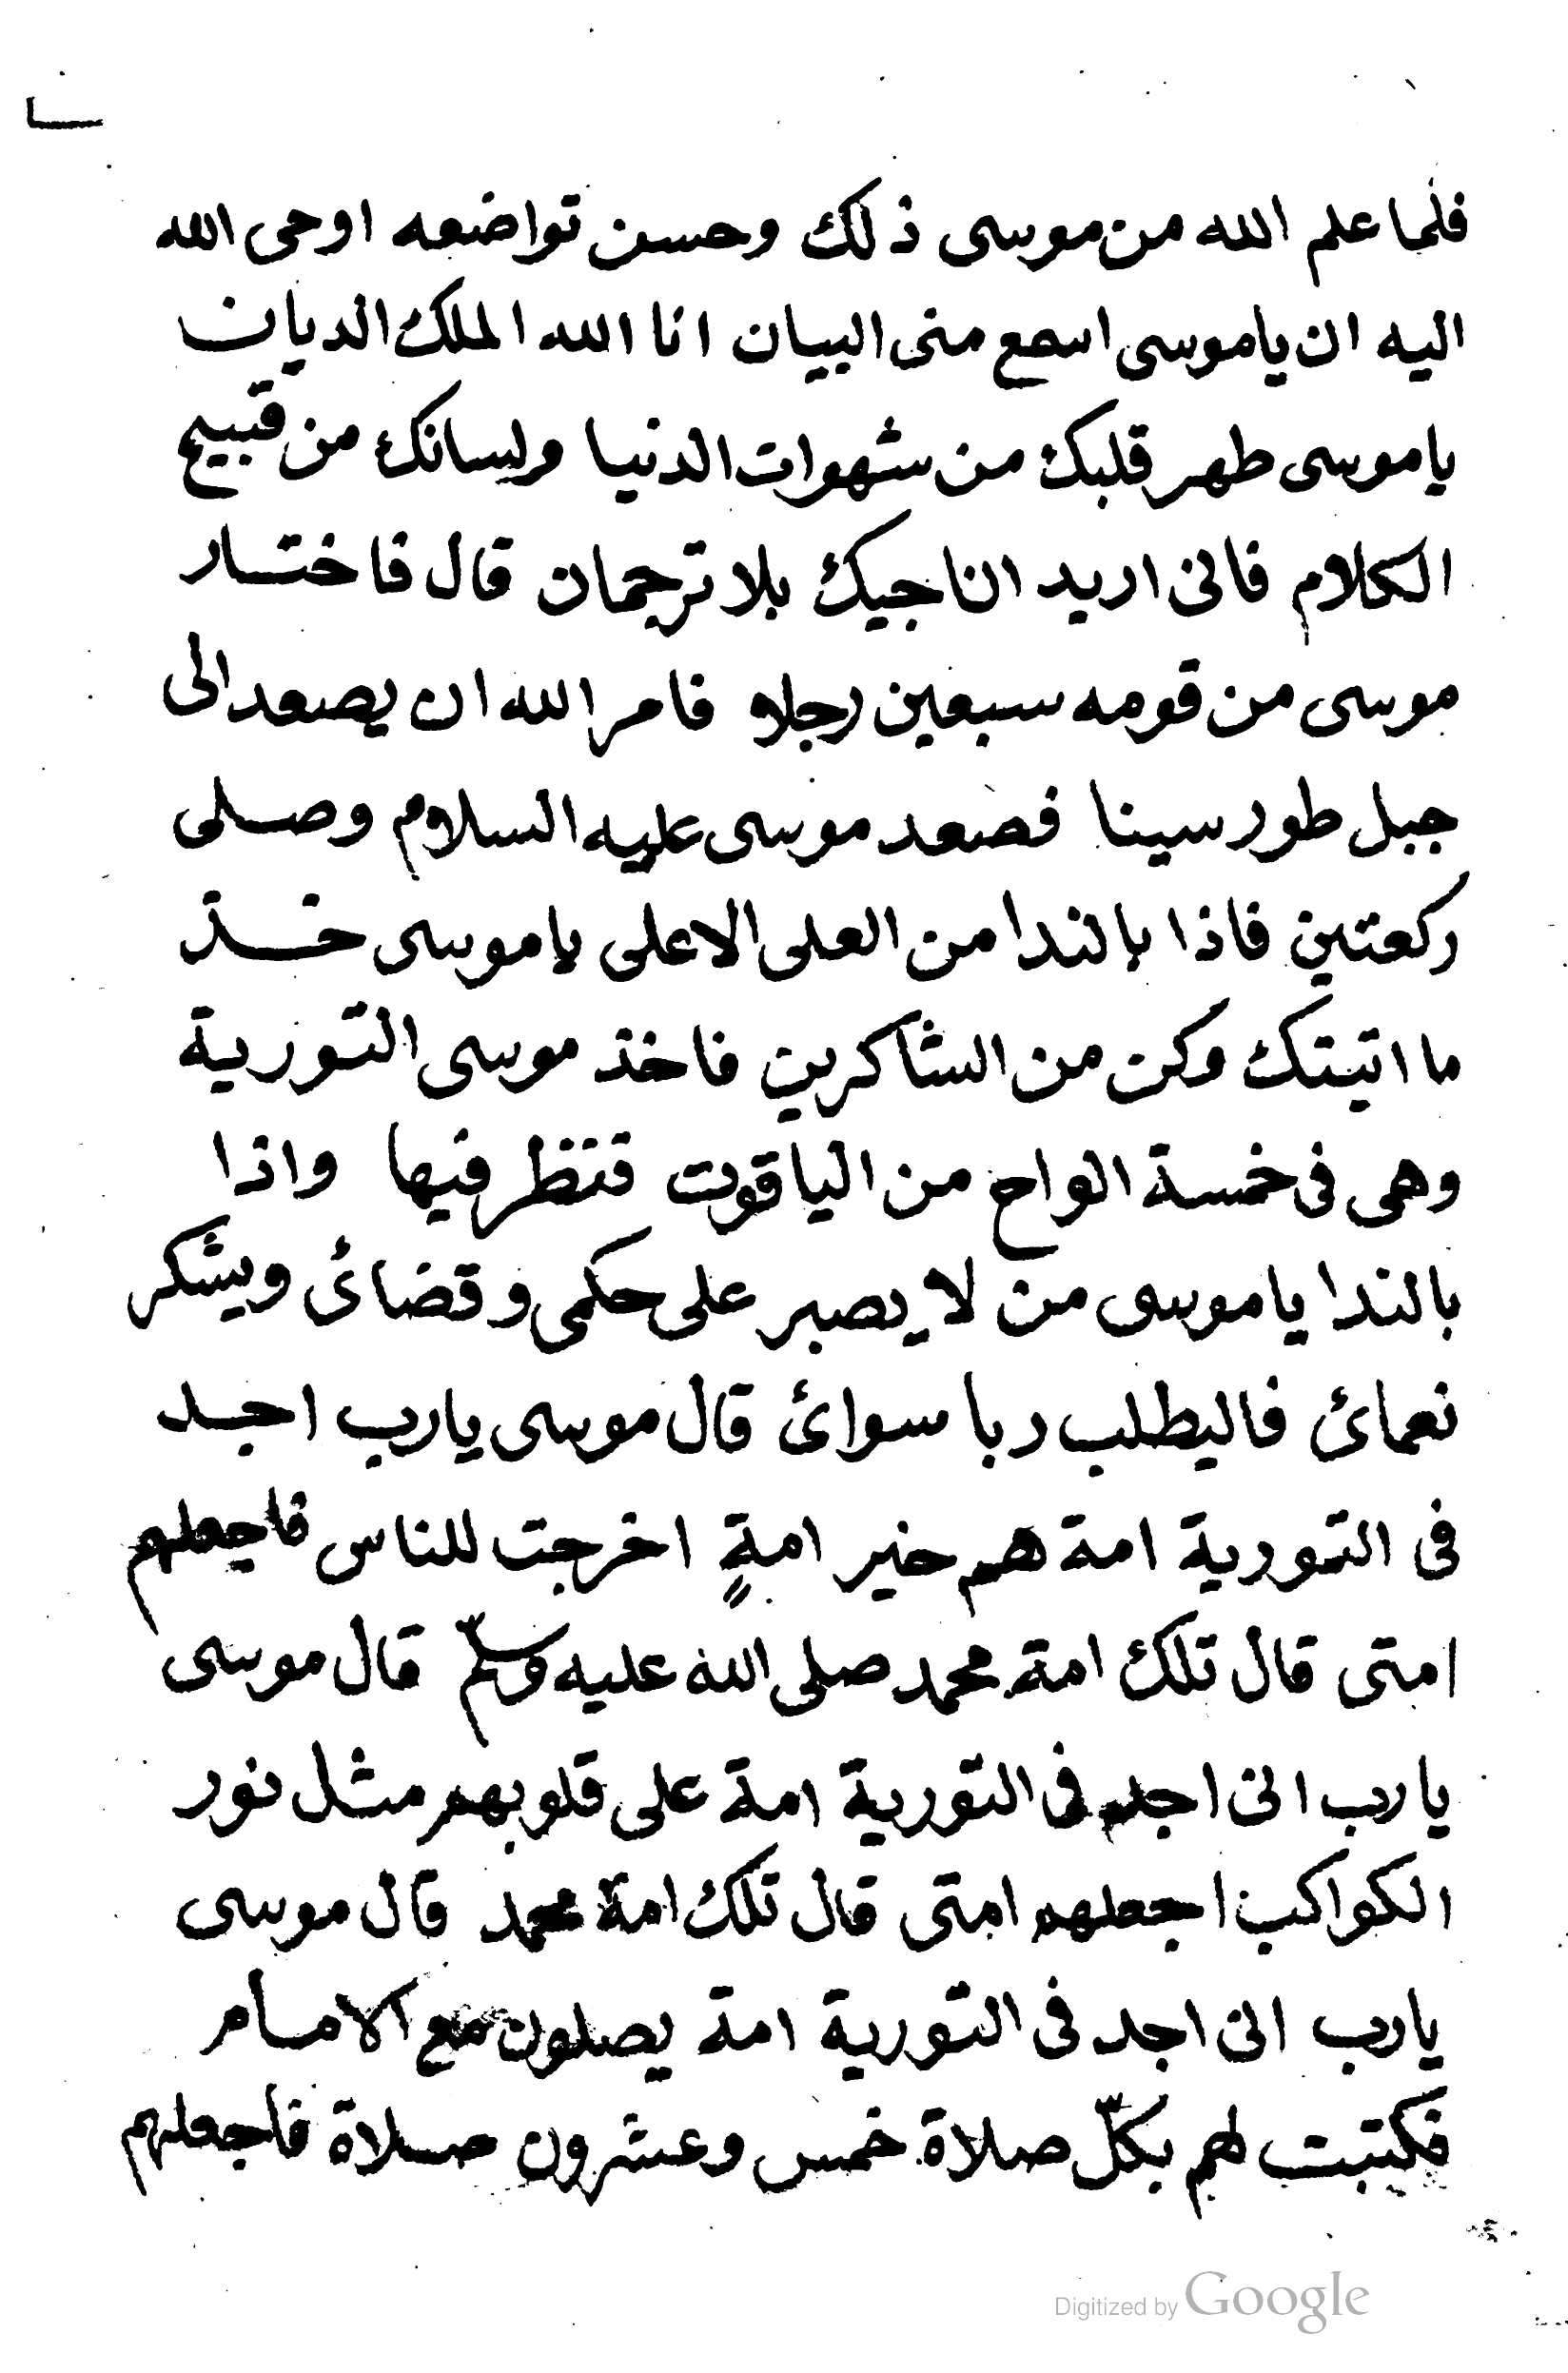 فلما علم الله من موسى ذلك وحسن تواضعه اوحى الله
اليه ان ياموسى اسمع منى البيان انا الله الملك الديان
ياموسى طهر قلبك من شهوات الدنيا ولسانك من قبيح
الكلام فانى اريد اناجيك بلا ترجمان قال فاختار
موسى من قومه سبعين رجلا فامر الله ان يصعد الى
جبل طور سينا فصعد موسى عليه السلام وصلى
ركعتين فاذا بالندا من العلى الاعلى ياموسى خذ
ما اتيتك وكن من الشاكرين فاخذ موسى التورية
وهى فى خمسة الواح من الياقوت فنظر فيها واذا
بالندا ياموسى من لا يصبر على حكمى وقضائ ويشكر
نعمائ فاليطلب ربا سوائ قال موسى يارب اجد
فى التورية امة هم خير امةٍ اخرجت للناس فاجعلهم
امتى قال تلك امة محمد صلى الله عليه وسلّم قال موسى
يارب انى اجد فى التورية امة على قلوبهم مثل نور
الكواكب اجعلهم امتى قال تلك امة محمد قال موسى
يارب انى اجد فى التورية امة يصلون مع الامام
فكتبت لهم بكلّ صلاة خمس وعشرون صلاة فاجعلهم
Digitized by Google